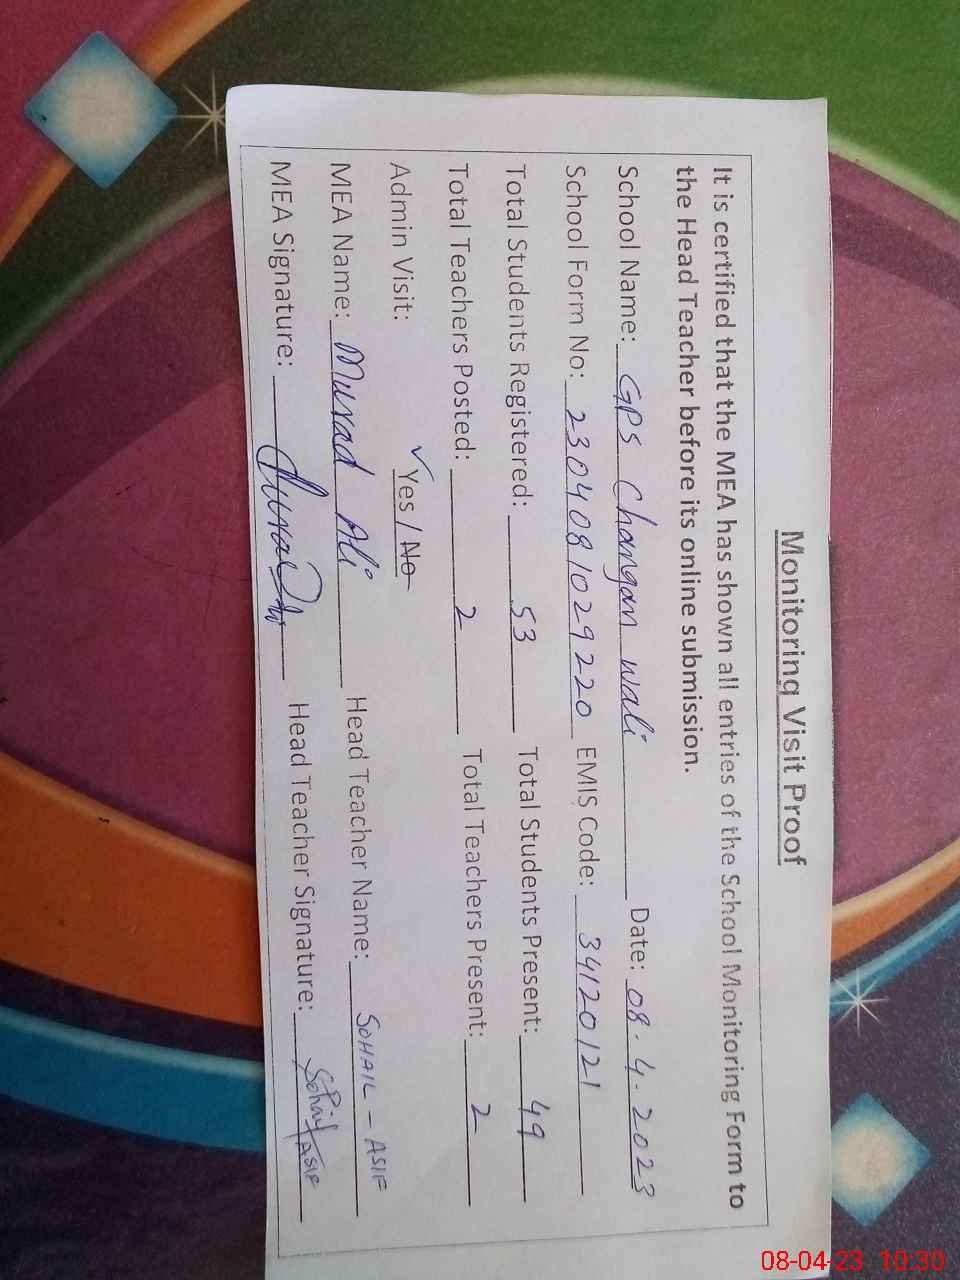 Monitoring Visit Proof
It is certified that the MEA has shown all entries of the School Monitoring Form to
the Head Teacher before its online submission.
School Name: GPS Changan wali Date: 08.4.2023
School Form No: 2304081029220 EMIS Code: 34120121
Total Students Registered: 53 Total Students Present: 49
Total Teachers Posted: 2 Total Teachers Present: 2
Admin Visit: ✓Yes / No
MEA Name: Murad Ali Head Teacher Name: SOHAIL - ASIF
MEA Signature: Head Teacher Signature: Sohail ASIF
08-04-23 10:30